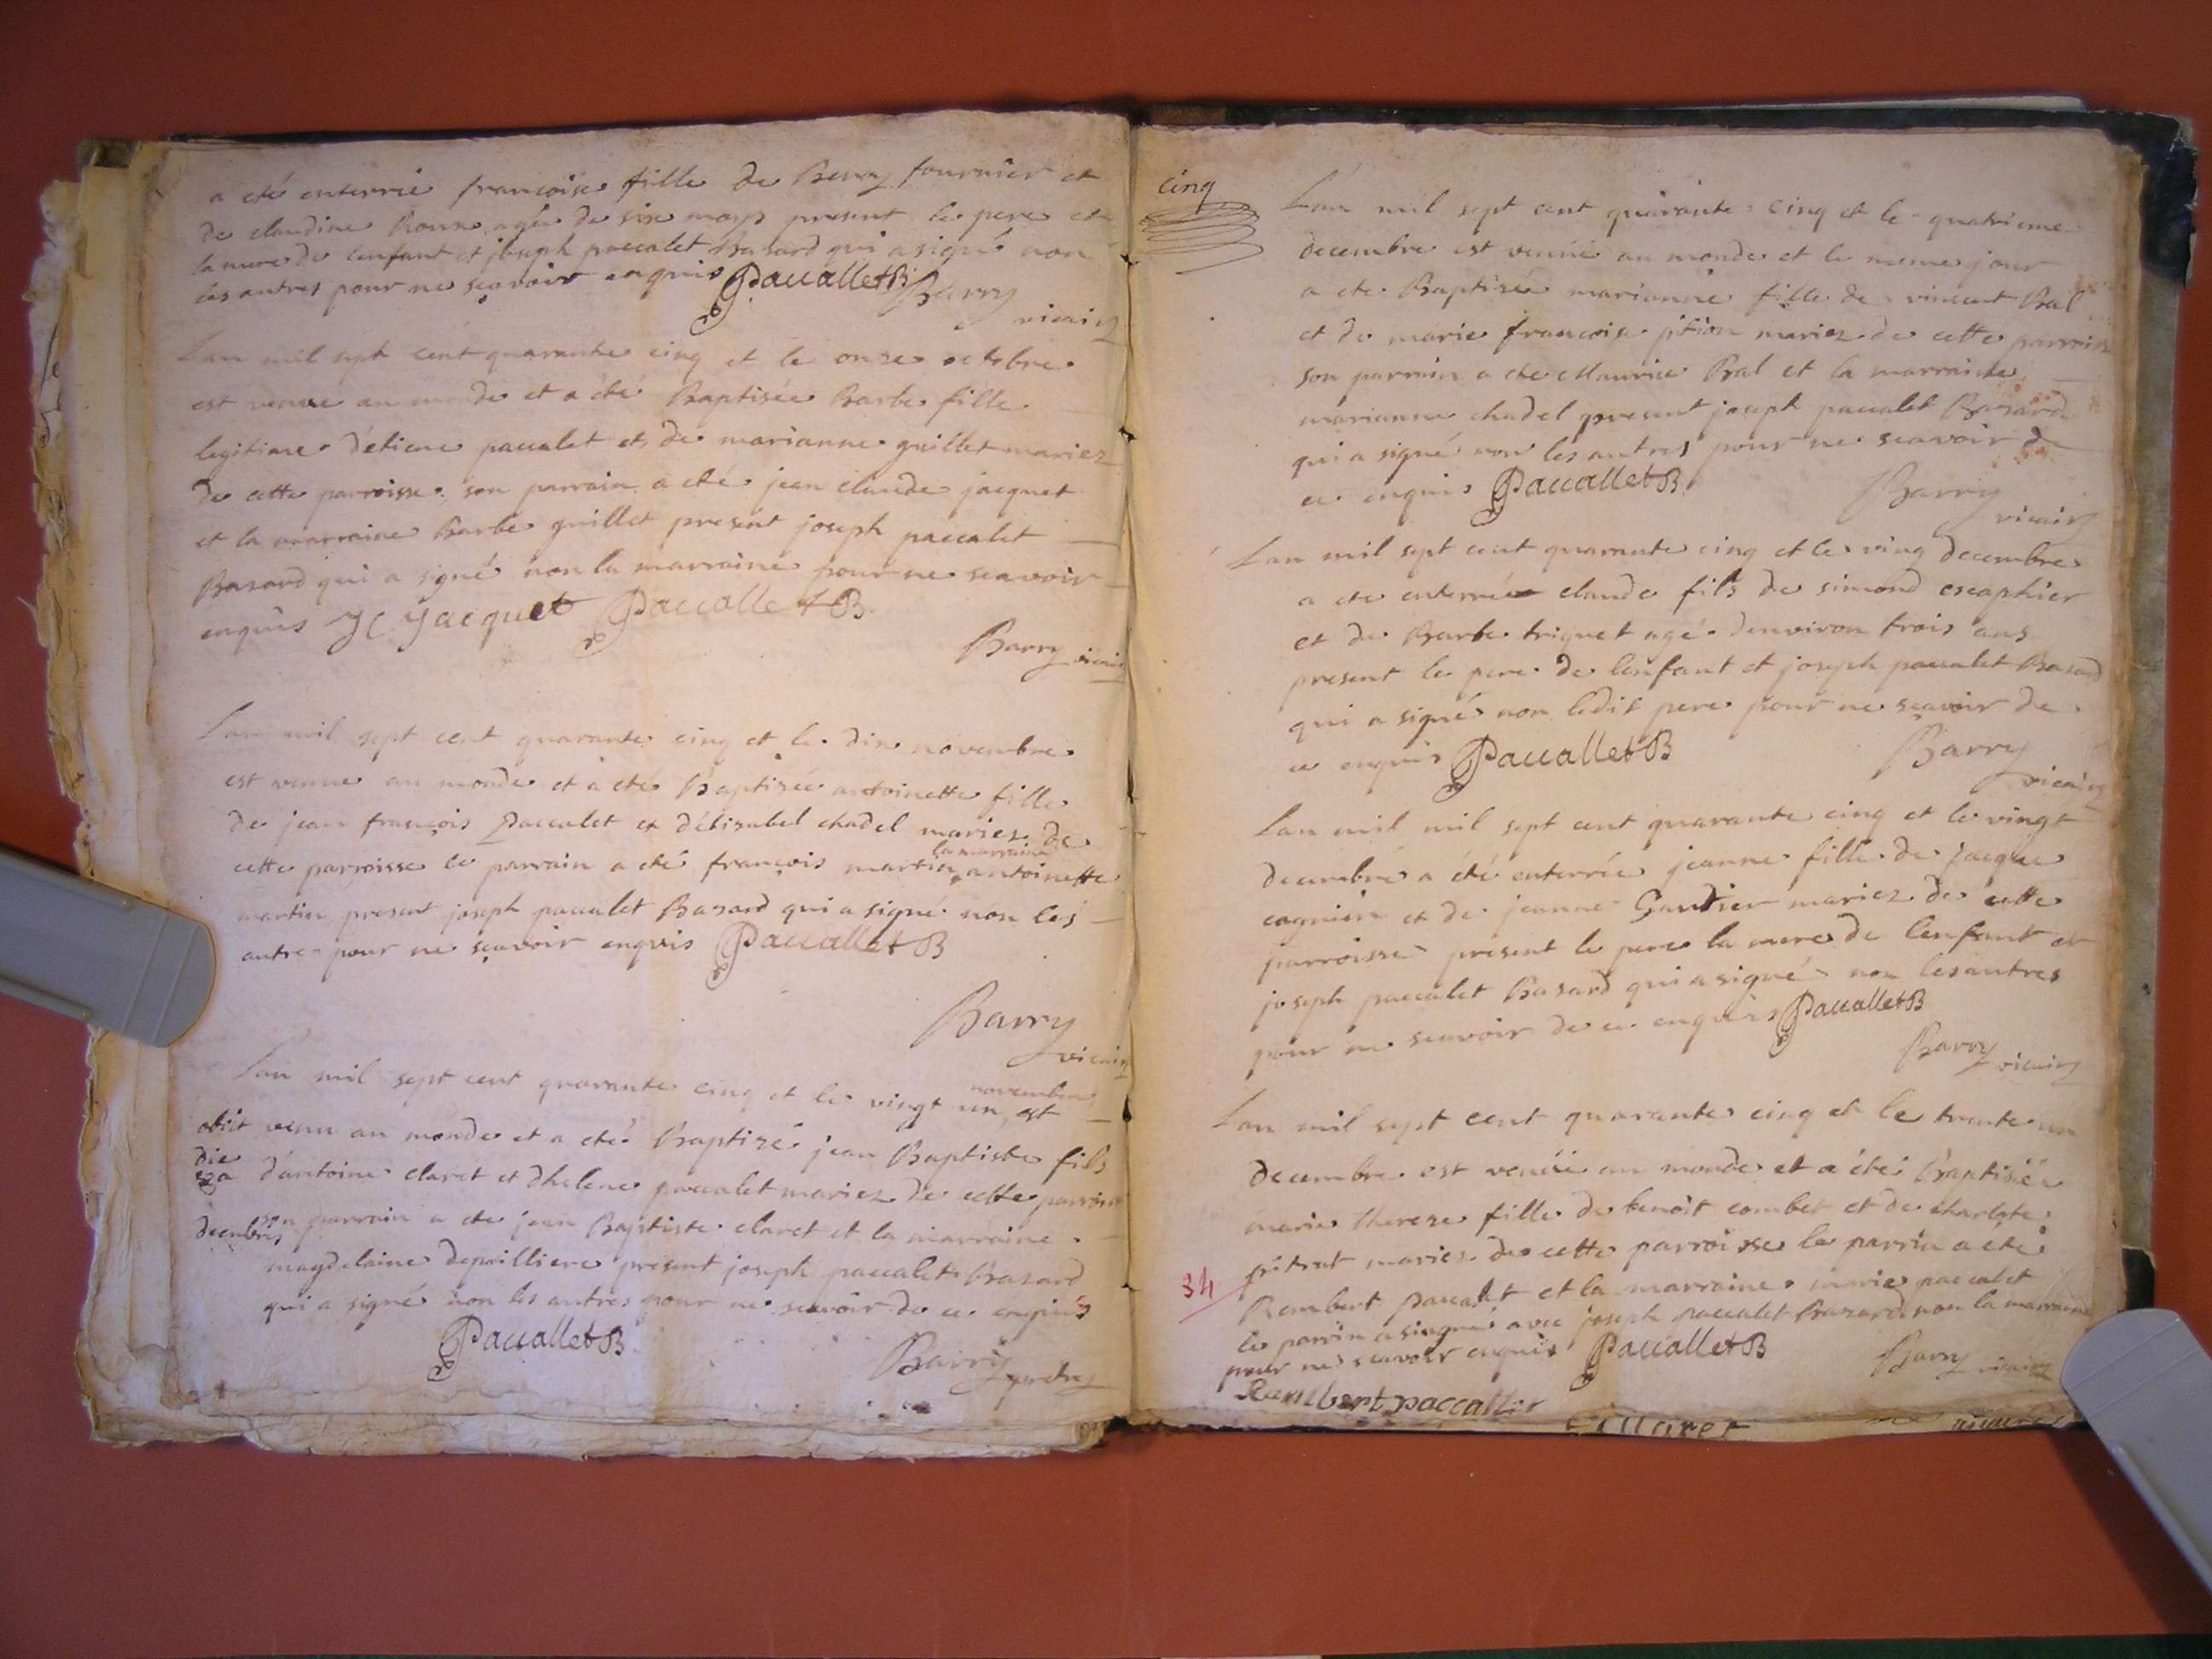 a eté enterrée francoise fille de Beny fournier et
de claudine Roux agée de six moys present le pere et
la mere de lenfant et joseph paccalet Basard qui a signé non
les autres pour ne sçavoir enquis PaccalletB Barry
vicaire
Lan mil sept cent quarante cinq et le onze octobre
est venue au monde et a été Baptisée Barbe fille
legitime détiene paccalet et de marianne guillet mariez
de cette parroisse son parrain a eté jean claude jacquet
et la marraine Barbe guillet present joseph paccalet
Basard qui a signé non la marraine pour ne scavoir
enquis JC Jacquet PaccalletB
Barry vicaire
Lan mil sept cent quarante cinq et le dix novembre
est venue au monde et a eté Baptisée antoinette fille
de jean françois paccalet et délisabet chadel mariez de
cette parroisse le parrain a eté françois martin la marraine antoinette
martin present joseph paccalet Basard qui a signé non les
autre pour ne sçavoir enquis PaccalletB
Barry
vicaire
Lan mil sept cent quarante cinq et le vingt un novembre est
obiit venu au monde et a eté Baptizé jean Baptiste fils
die
d'antoine claret et dhelene paccalet mariez de cette parroisse
decembris son parrain a ete jean Baptiste claret et la marraine
magdelaine present joseph paccalet Basard
qui a signé non les autres pour ne scavoir de ce enquis
PaccalletB
Barry
cinq
Lan mil sept cent quarante cinq et le quatrieme
decembre est venüe au monde et le meme jour
a ete Baptisée marianne fille de vincent Bal
et de marie francoise pition mariez de cette parroisse
son parrain a ete Maurice Bal et la marraine
marianne chadel present joseph paccalet Basard
qui a signé non les autres pour ne scavoir de
ce enquis PaccalletB
Barry
vicaire
Lan mil sept cent quarante cinq et le vingt decembre
a ete enterrée claude fils de simond escaphier
et de Barbe triquet agé denviron trois ans
present le pere de lenfant et joseph paccalet Basard
qui a signé non ledit pere pour ne scavoir de
ce enquis PaccalletB
Barry
vicaire
Lan mil mil sept cent quarante cinq et le vingt
decembre a été enterrée jeanne fille de Jacque
cagnien et de jeanne Gautier mariez de cette
parroisse present le pere la mere de lenfant et
joseph paccalet Basard qui a signé non les autres
pour ne scavoir de ce enquis PaccalletB
Barry vicaire
Lan mil sept cent quarante cinq et le trente un
decembre est venüe au monde et a été Baptisée
marie therese fille de benoit combet et de charlote
pitrat mariez de cette parroisse le parrin a ete
34
Rembert paccalet et la marraine marie paccalet
le parrin a singné avec joseph paccalet Bazard non la marraine
pour ne scavoir enquis PaccalletB Barry vicaire
Rembert paccallet